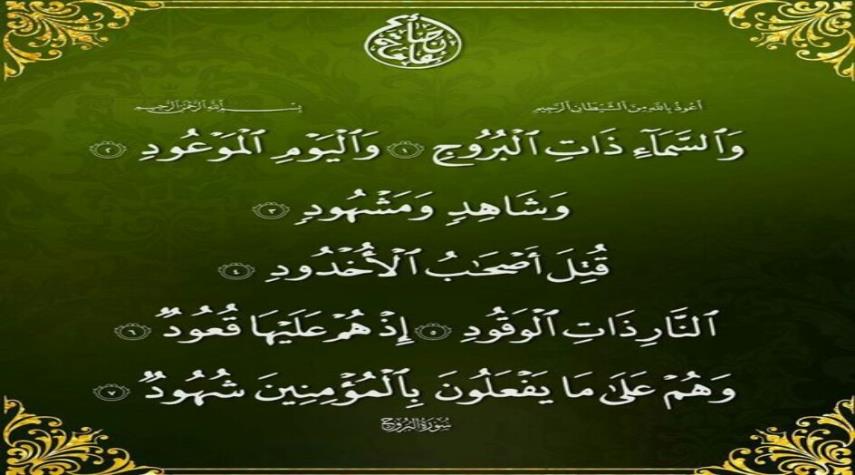 أعوذ بالله من الشيطان الرجيم بسم الله الرحمن الرحيم
وَٱلسَّمَآءِ ذَاتِ ٱلْبُرُوجِ ١ وَٱلْيَوْمِ ٱلْمَوْعُودِ ٢
وَشَاهِدٍ وَمَشْهُودٍ ٣
قُتِلَ أَصْحَٰبُ ٱلْأُخْدُودِ ٤
ٱلنَّارِ ذَاتِ ٱلْوَقُودِ ٥ إِذْ هُمْ عَلَيْهَا قُعُودٌ ٦
وَهُمْ عَلَىٰ مَا يَفْعَلُونَ بِٱلْمُؤْمِنِينَ شُهُودٌ ٧
سُورَةُ البُرُوج